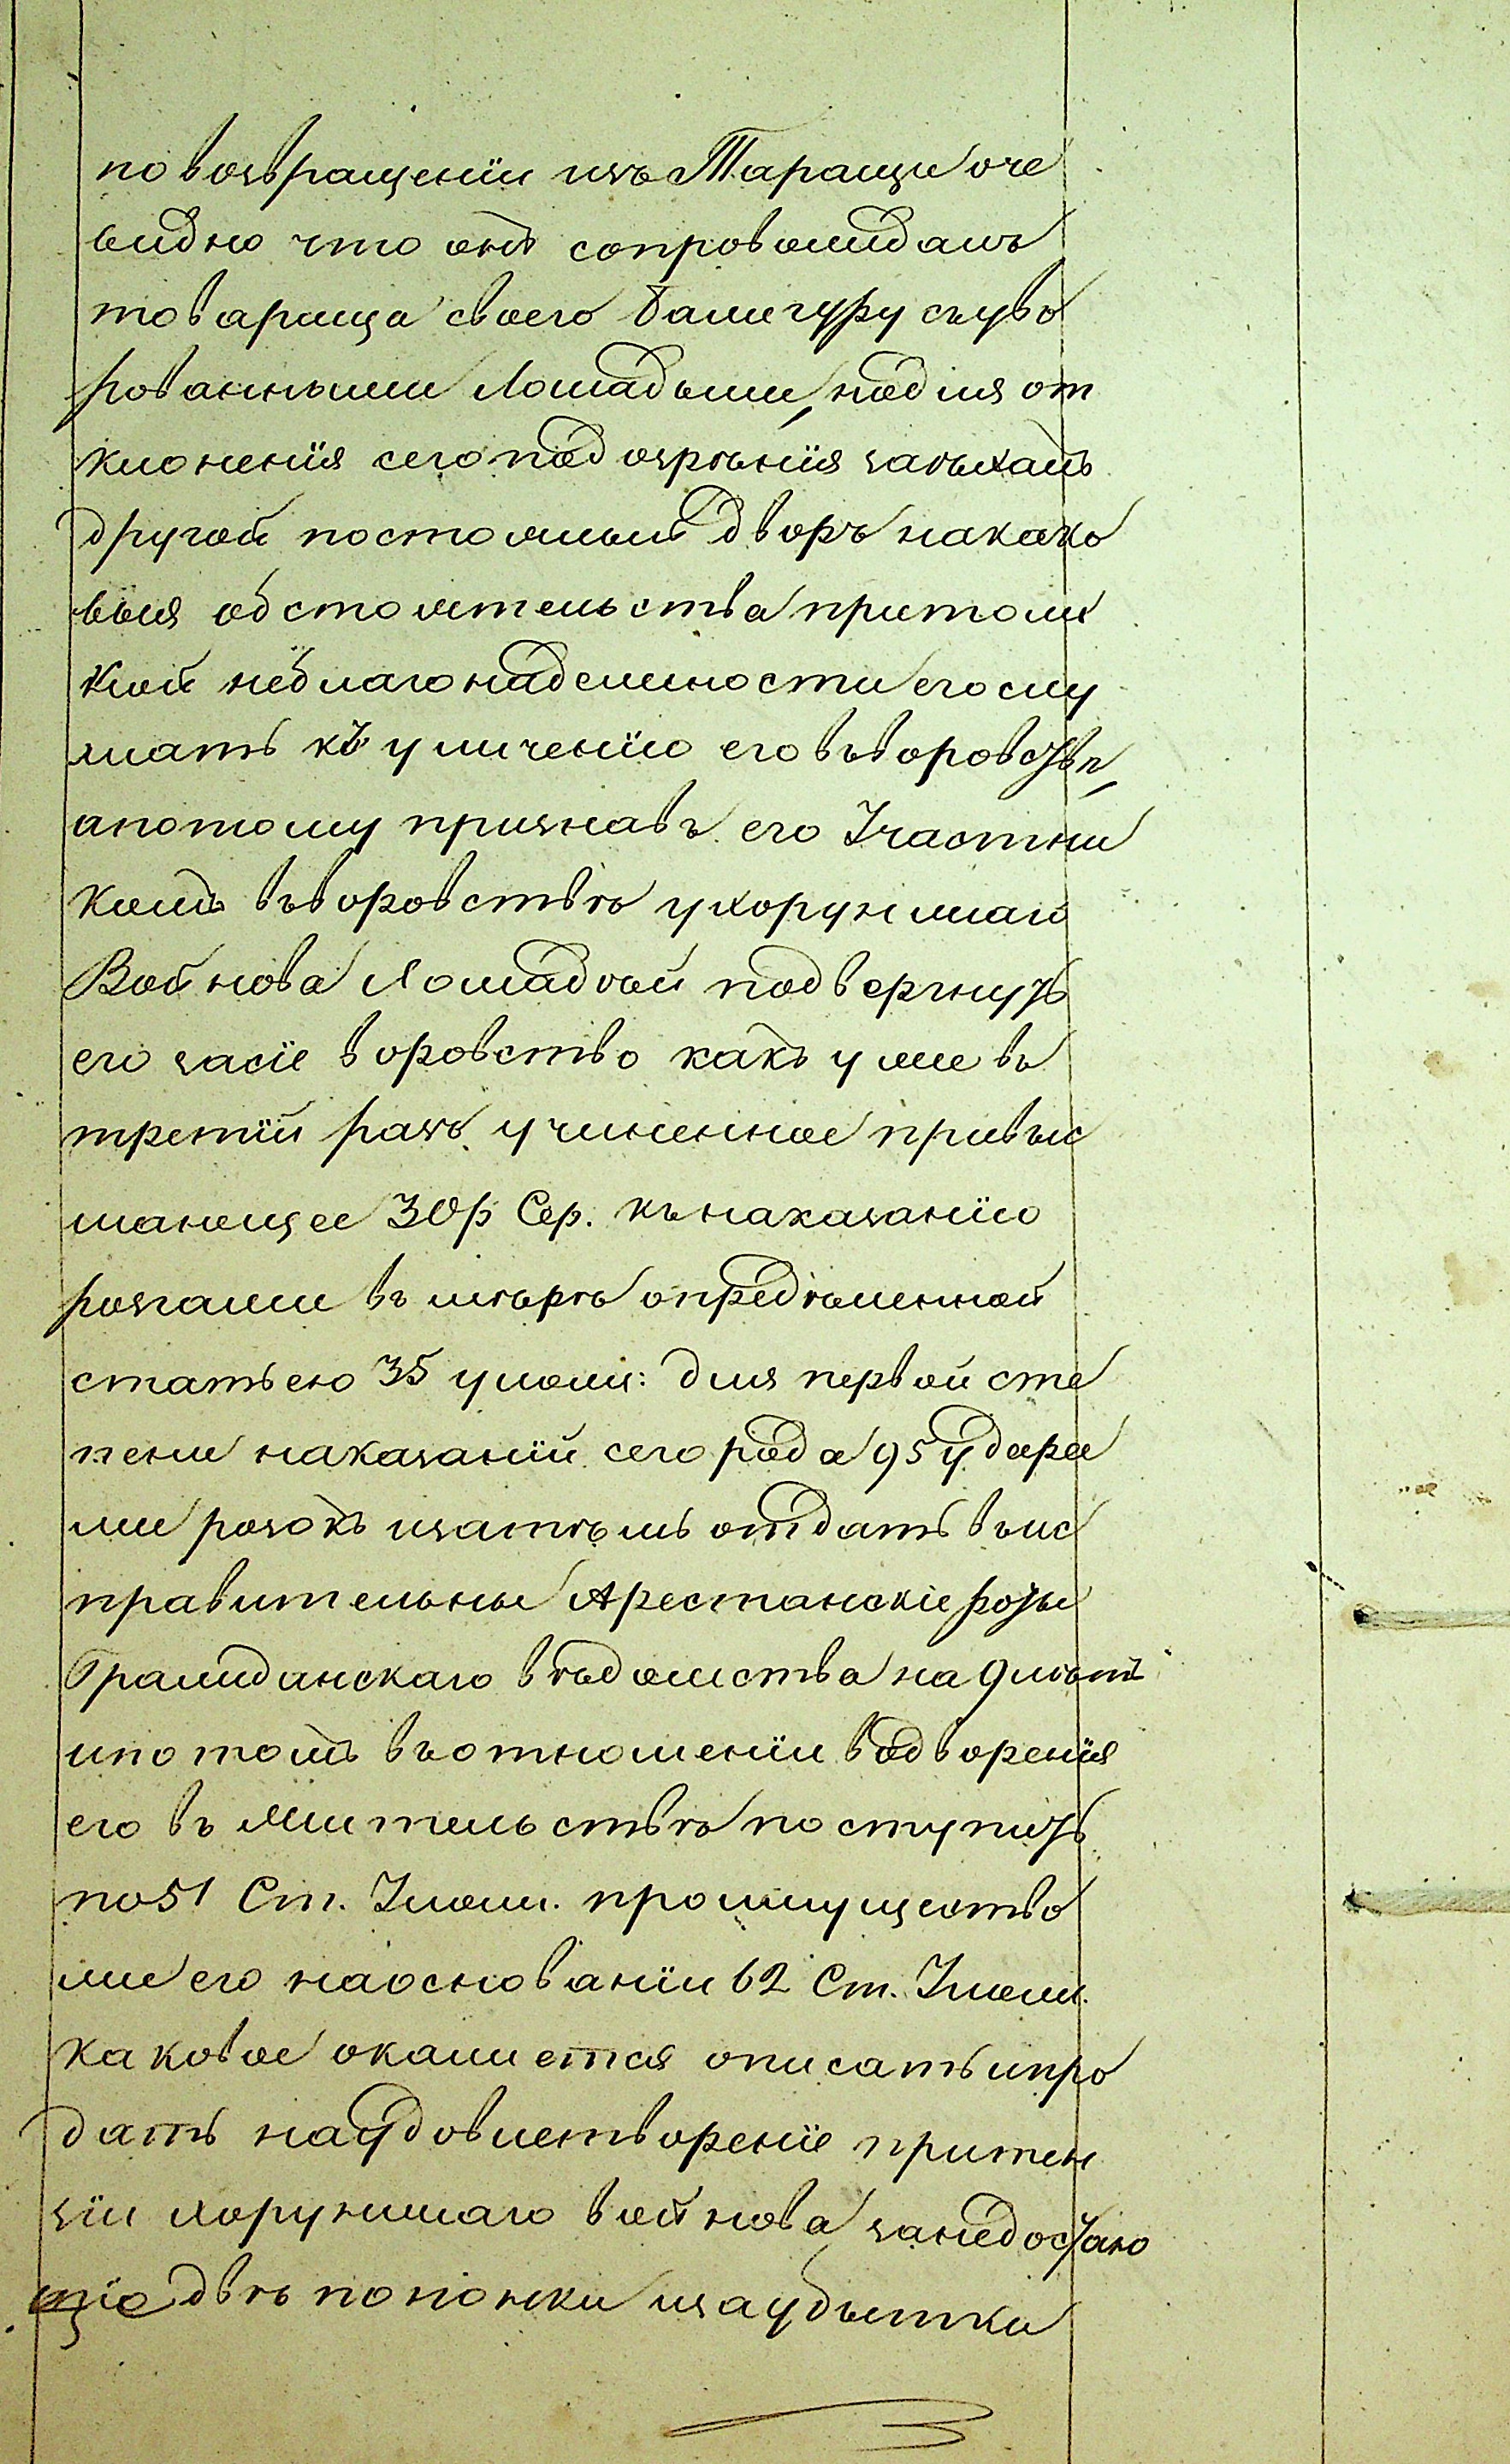 по возвращеніи изъ Таращи оче
видно что онъ сопровождалъ
товарища своего Бажгуру съуво
рованными Лошадьми, подля от
клоненія сего подозрѣнія заѣхалъ
другой постоялый дворъ накако
выя обстоятельства притоли
кой неблагонадежности его слу
жатъ къ уличенію его въворовствѣ,
апотому признавъ его Участни
комъ въворовствѣ ухорунжаго
Войнова Лошадѣй подвергнуть
его засіе воровство какъ уже въ
третій разъ учиненное превыс
шающее 30р Сер. къ наказанію
розгами въ мѣрѣ опредѣленной
статьею 35 улож: для первой сте
пени наказаній сего рода 95 удара
ми розокъ изатѣмъ отдать въис
правительныя Арестанскіе роты
Гражданскаго вѣдомства на 9 лѣтъ
ипотомъ въотношеніи водворенія
его въ Жительствѣ поступить
по 51 Ст. Улож. проимущество
же его наоснованіи 62 Ст. Улож.
каковое окажется описать ипро
дать наудовлетвореніе притен
зіи хорунжаго войнова занедостаю
щіе двѣ попонки изаубытки